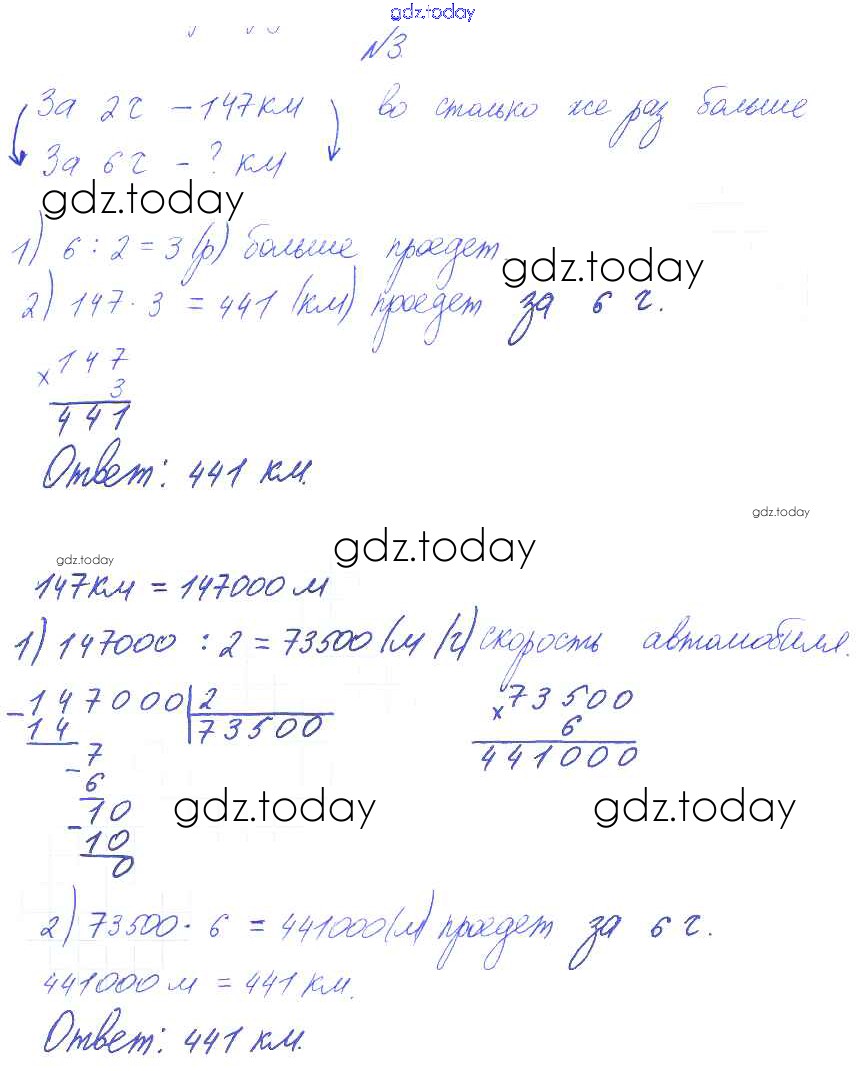 gdz.today
№3.
За 2 ч – 147 км во столько же раз больше
За 6 ч – ? км
gdz.today
1) 6 : 2 = 3 (р) больше проедет
gdz.today
2) 147 · 3 = 441 (км) проедет за 6 ч.
× 147
3
441
Ответ: 441 км.
gdz.today
gdz.today
gdz.today
147 км = 147000 м
1) 147000 : 2 = 73500 (м/ч) скорость автомобиля.
– 147000 | 2
14 | 73500
– 7
6
– 10
10
0
× 73500
6
441000
gdz.today
gdz.today
2) 73500 · 6 = 441000 (м) проедет за 6 ч.
441000 м = 441 км.
Ответ: 441 км.